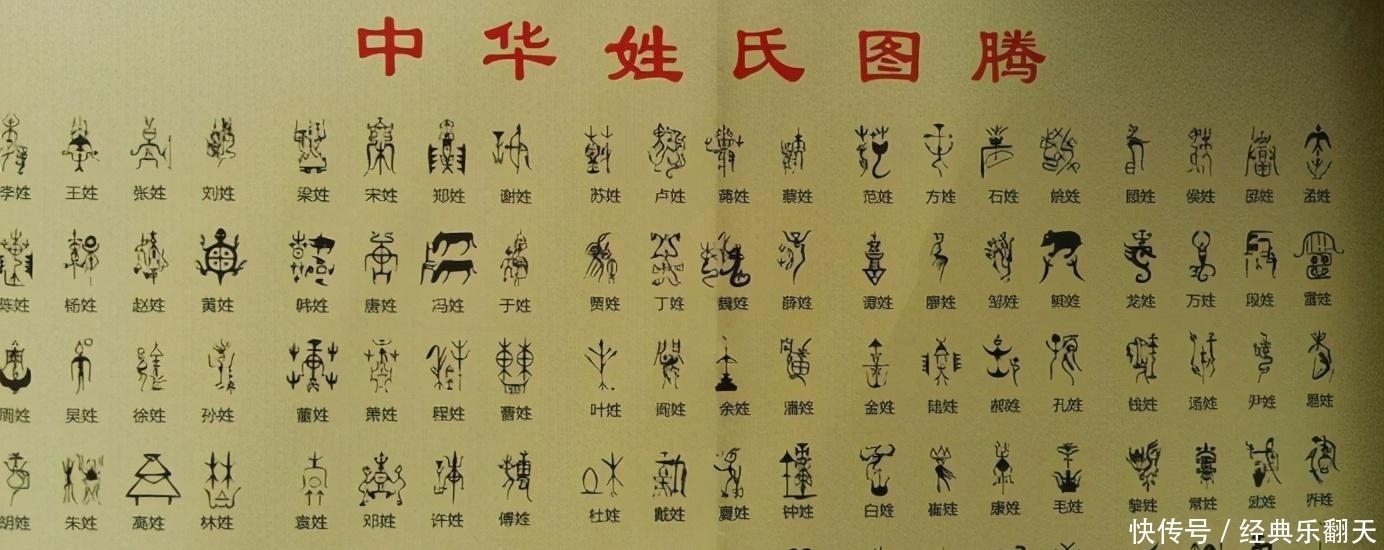 中华姓氏图腾
李姓 王姓 张姓 刘姓 梁姓 宋姓 郑姓 谢姓 苏姓 卢姓 蒋姓 蔡姓 范姓 方姓 石姓 姚姓 顾姓 侯姓 邵姓 孟姓
陈姓 杨姓 赵姓 黄姓 韩姓 唐姓 冯姓 于姓 贾姓 丁姓 魏姓 薛姓 谭姓 廖姓 邹姓 熊姓 龙姓 万姓 段姓 雷姓
周姓 吴姓 徐姓 孙姓 董姓 萧姓 程姓 曹姓 叶姓 阎姓 余姓 潘姓 金姓 陆姓 郝姓 孔姓 钱姓 汤姓 尹姓
胡姓 朱姓 高姓 林姓 袁姓 邓姓 许姓 傅姓 杜姓 戴姓 夏姓 钟姓 白姓 崔姓 康姓 毛姓 黎姓 常姓 武姓 乔姓
快传号 / 经典乐翻天